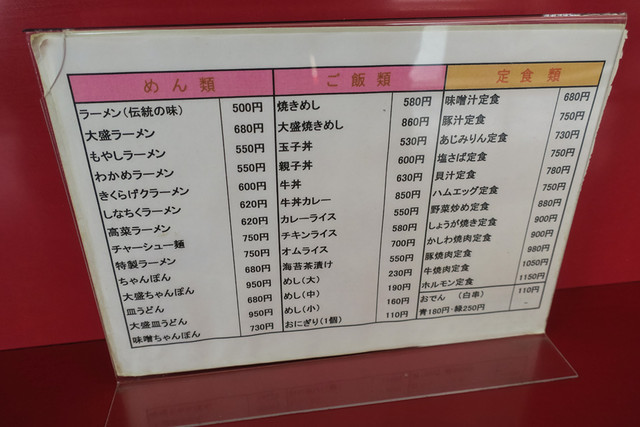 めん類
ラーメン(伝統の味) 500円
大盛ラーメン 680円
もやしラーメン 550円
わかめラーメン 550円
きくらげラーメン 600円
しなちくラーメン 620円
高菜ラーメン 620円
チャーシュー麺 750円
特製ラーメン 750円
ちゃんぽん 680円
大盛ちゃんぽん 950円
皿うどん 680円
大盛皿うどん 950円
味噌ちゃんぽん 730円
ご飯類
焼きめし 580円
大盛焼きめし 860円
玉子丼 530円
親子丼 600円
牛丼 630円
牛丼カレー 850円
カレーライス 550円
チキンライス 580円
オムライス 700円
海苔茶漬け 550円
めし(大) 230円
めし(中) 190円
めし(小) 160円
おにぎり(1個) 110円
定食類
味噌汁定食 680円
豚汁定食 750円
あじみりん定食 730円
塩さば定食 750円
貝汁定食 780円
ハムエッグ定食 750円
野菜炒め定食 880円
しょうが焼き定食 900円
かしわ焼肉定食 900円
豚焼肉定食 980円
牛焼肉定食 1050円
ホルモン定食 1150円
おでん (白串) 110円
青180円・緑250円